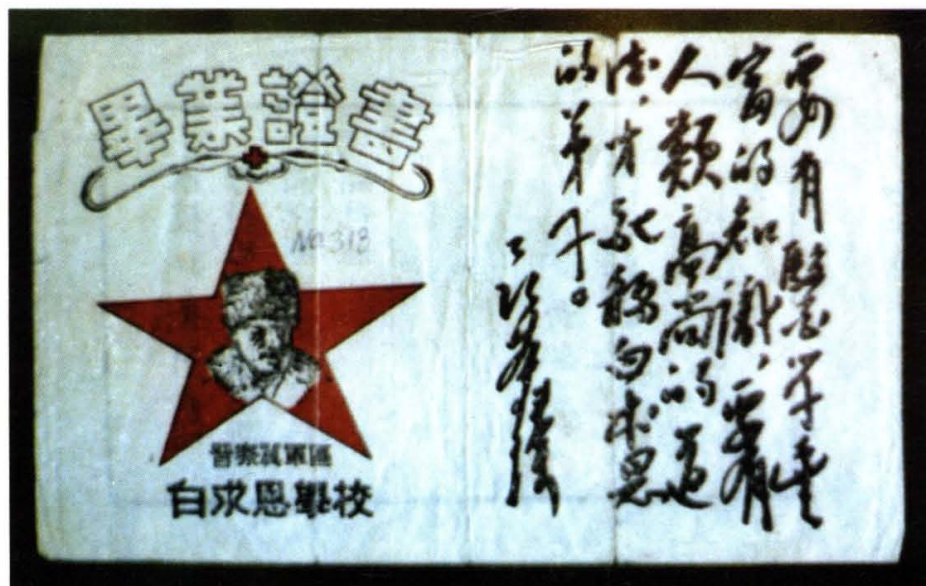 畢業證書
No 313
晉察冀軍區
白求恩學校
要有醫学豐
富的知識、要有
人類高尚的道
德、才配稱白求恩
的弟子。
聶榮臻